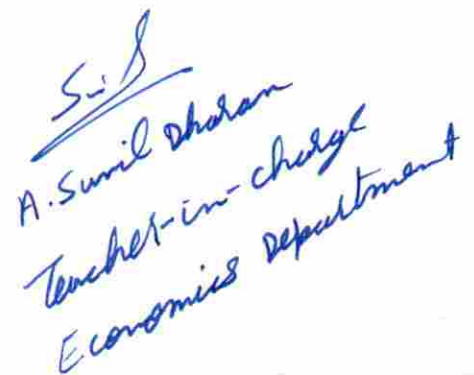 A. Sunil Dharan
Teacher-in-charge
Economics Department